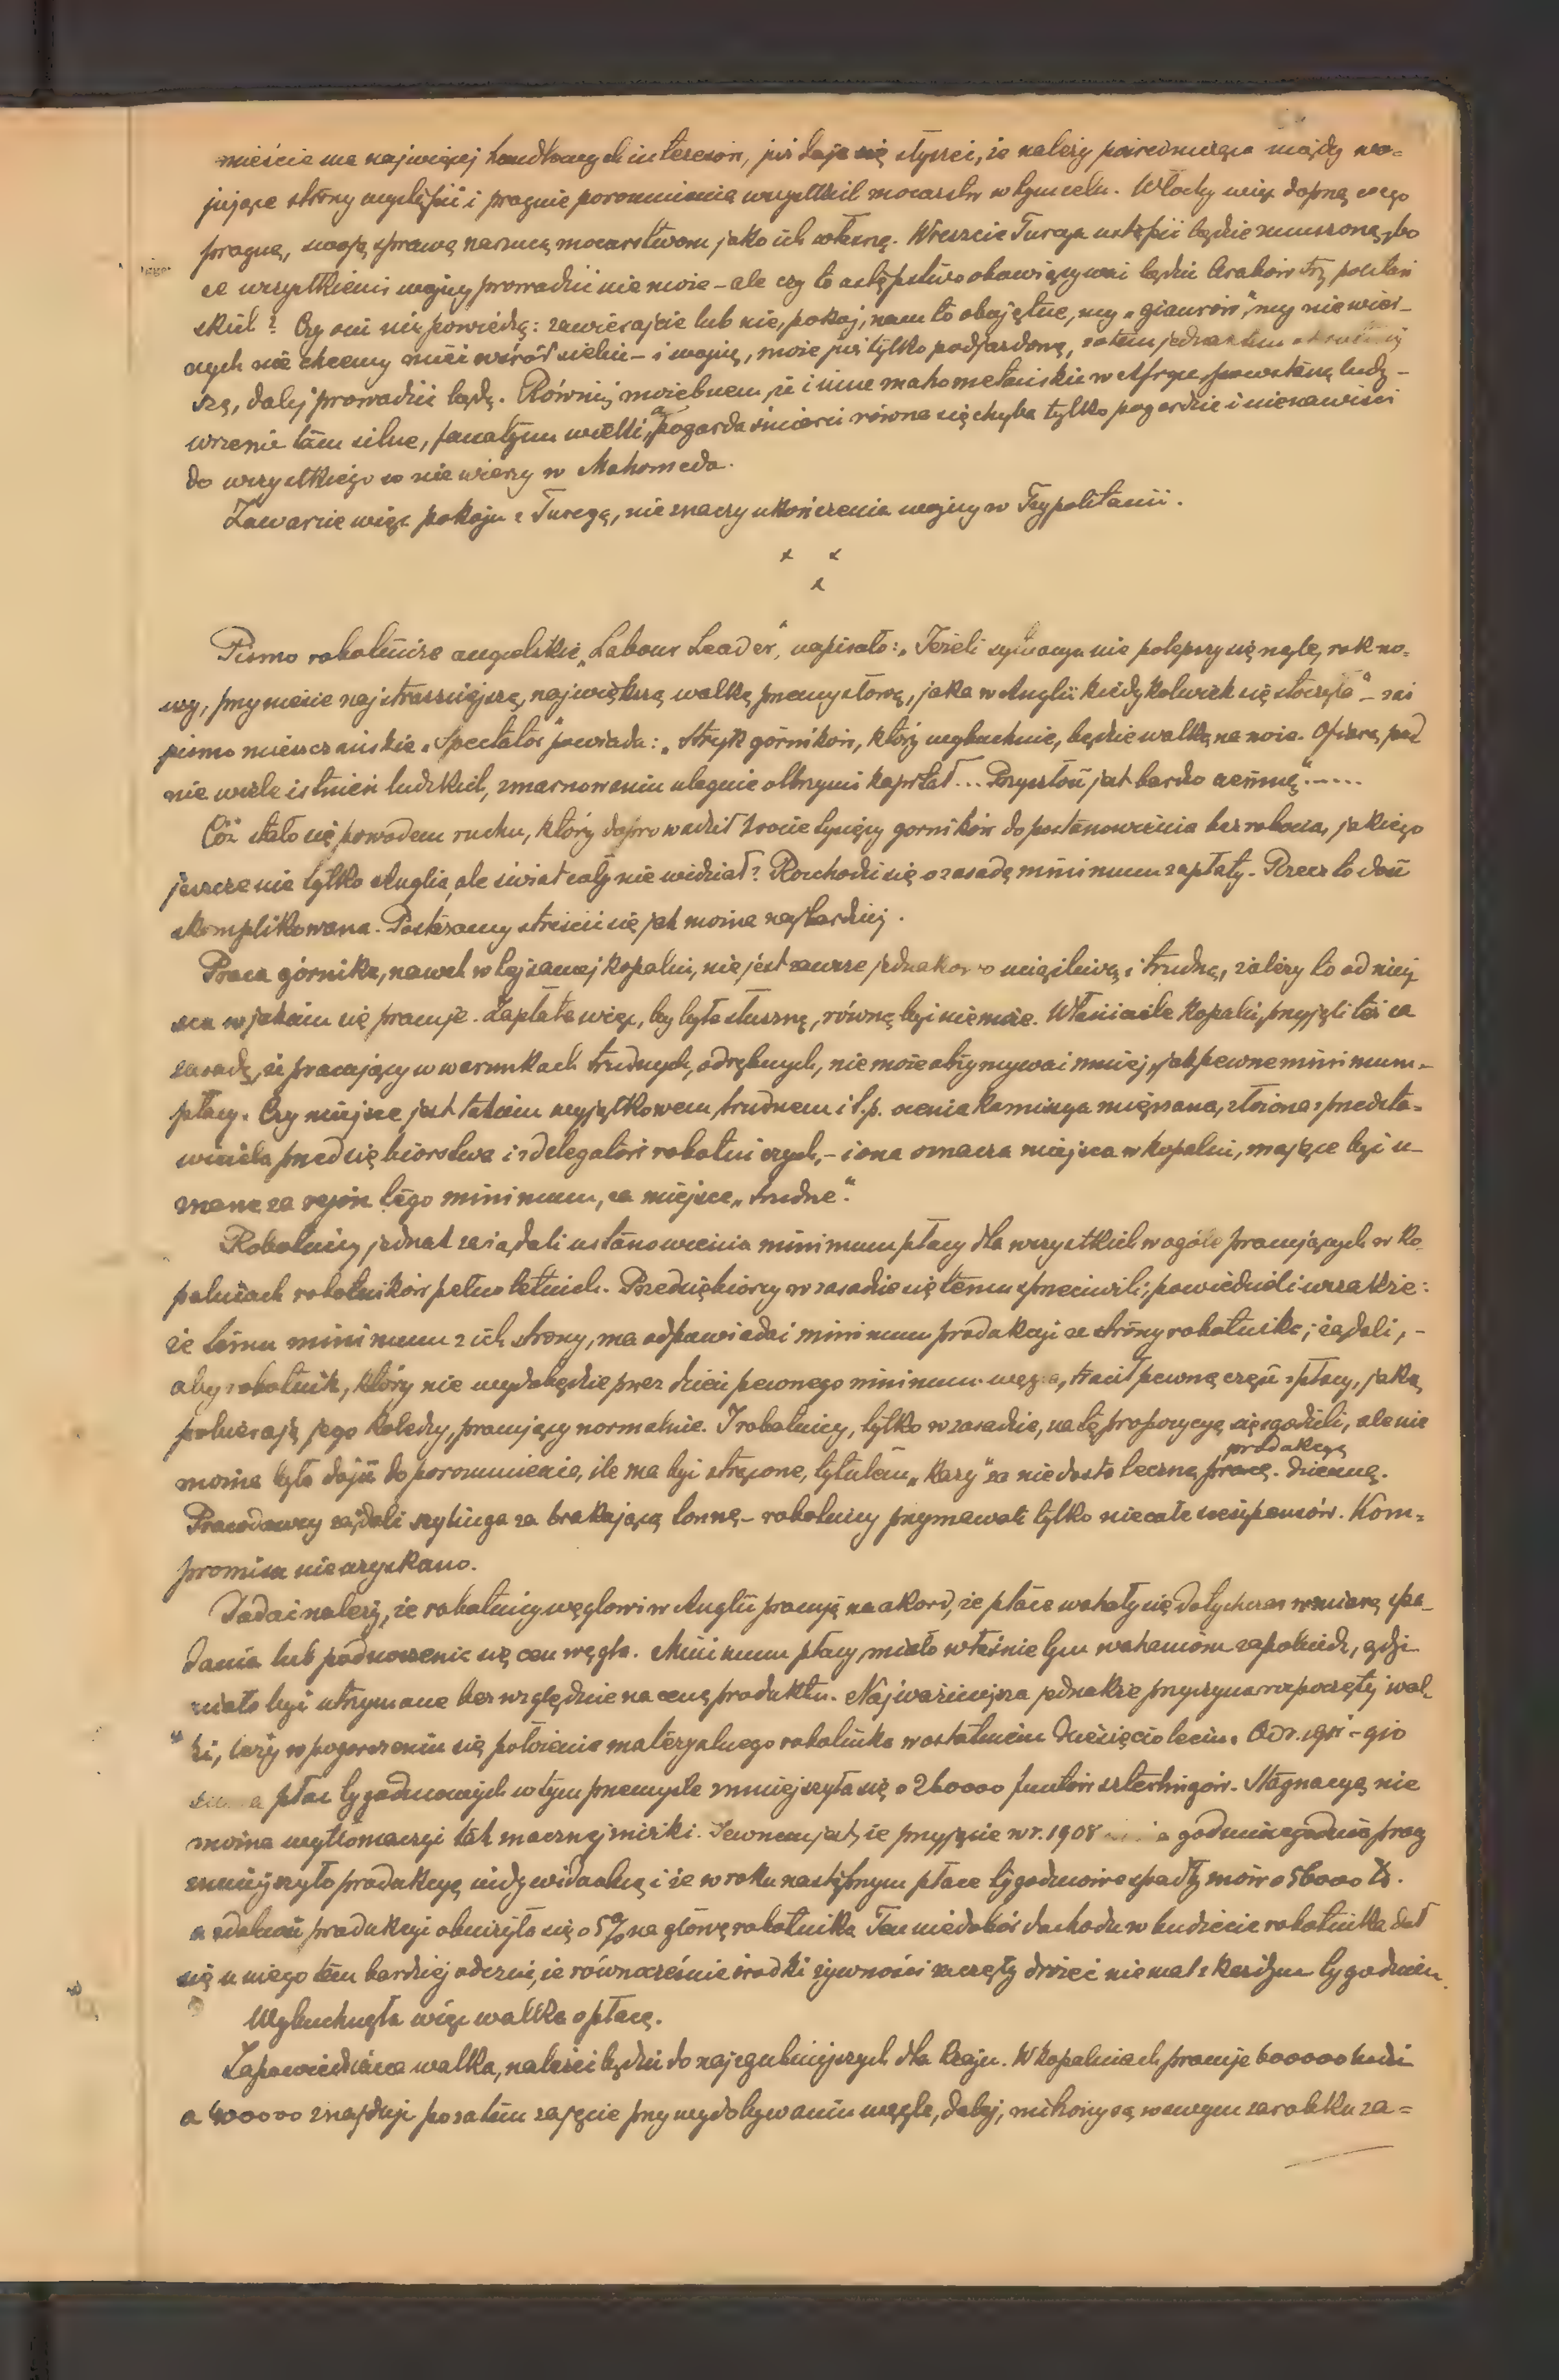 mieście ma najwięcej handlowych interesów, już daje się słyszeć, że należy pośrednicząco między wo-
jujące strony wystąpić i pragnie porozumienia wszystkich mocarstw w tym celu. Włochy więc dopną czego
pragną, swoją sprawę narzucą mocarstwom jako ich własną. Wreszcie Turcya ustąpić będzie zmuszoną, bo
ze wszystkiemi wojny prowadzić nie może – ale czy to ustępstwo obowiązywać będzie Arabów try politań
skich? Czy oni nie powiedzą: zawierajcie lub nie, pokój, nam to obojętne, my „giaurów", my niewier-
nych nie chcemy mieć wśród siebie – i wojnę, może już tylko podjazdową, zatem jednak tem
szą, dalej prowadzić będą. Równie możebnem, że i inne mahometańskie w Afryce powstaną ludy –
wrzenie tam silne, fanatyzm wielki, a pogarda śmierci równa się chyba tylko pogardzie i nienawiści
do wszystkiego co nie wierzy w Mahomeda.
Zawarcie więc pokoju z Turcyą, nie znaczy ukończenia wojny w Trypolitanii.
x x
x
Pismo robotnicze angielskie „Labour Leader", napisało: „Jeżeli sytuacya nie polepszy się nagle, rok no-
wy, przyniesie najstraszniejszą, największą walkę przemysłową, jaka w Anglii kiedykolwiek się stoczyła" – zaś
pismo mieszczańskie „Spectator" powiada: „Strejk górników, który wybuchnie, będzie walką na noże. Ofiarą, pad
nie wiele istnień ludzkich, zmarnowaniu ulegnie olbrzymi kapitał... Przyszłość jest bardzo ciemną".....
Cóż stało się powodem ruchu, który doprowadził krocie tysięcy gorników do postanowienia bezrobocia, jakiego
jeszcze nie tylko Anglia, ale świat cały nie widział? Rozchodzi się o zasadę minimum zapłaty. Rzecz to dość
skomplikowana. Postaramy streścić się jak można najbardziej.
Praca górnika, nawet w tej samej kopalni, nie jest zawsze jednakowo uciążliwą i trudną, zależy to od miej
sca w jakiem się pracuje. Zapłata więc, by była słuszną, równą być nie może. Właściciele kopalń, przyjęli też za
zasadę, że pracujący w warunkach trudnych, odrębnych, nie może otrzymywać mniej, jak pewne minimum
płacy. Czy miejsce jest takiem wyjątkowem, trudnem i t.p. ocenia komisya mięszana, złożona z przedsta-
wiciela przedsiębiorstwa i z delegatów robotniczych, – i ona oznacza miejsca w kopalni, mające być u-
znane za rejon tego minimum, za miejsce „trudne".
Robotnicy jednak zażądali ustanowienia minimum płacy dla wszystkich w ogóle pracujących w ko
palniach robotników pełnoletnich. Przedsiębiorcy w zasadzie się temu sprzeciwili; powiedzieli wszakże:
że temu minimum z ich strony, ma odpowiadać minimum produkcyi ze strony robotnika; żądali, –
aby robotnik, który nie wydobędzie przez dzień pewnego minimum węgla, tracił pewną część z płacy, jaką
pobierają jego koledzy, pracujący normalnie. I robotnicy, tylko w zasadzie, na tę propozycyę się zgodzili, ale nie
można było dojść do porozumienia, ile ma być strącone, tytułem „kary" za niedostateczną pracę produkcyą dzienną.
Pracodawcy żądali szylinga za brakującą tonnę – robotnicy przyznawali tylko niecałe sześć pensów. Kom-
promisu nie uzyskano.
Dodać należy, że robotnicy węglowi w Anglii pracują na akord, że płace wahały się dotychczas w miarę spa-
dania lub podnoszenia się cen węgla. Minimum płacy, miało właśnie tym wahaniom zapobiedz, gdyż
miało być utrzymane bez względu na cenę produktu. Najważniejsza jednakże przyczyna rozpoczętej wal-
ki, leży w pogorszeniu się położenia materyalnego robotnika w ostatniem dziesięcioleciu. Od r. 1901 – 910
suma płac tygodniowych w tym przemyśle zmniejszyła się o 260000 funtów szterlingów. Stagnacyą nie
można wytłomaczyć tak znacznej zniżki. Pewnem jest, że przyjęcie w r. 1908 godzinnego dnia pracy
zmniejszyło produkcyę indywidualną i że w roku następnym płace tygodniowe spadły znów o 56000 £.
a zdolność produkcyi obniżyła się o 5% na głowę robotnika. Ten niedobór dochodu w budżecie robotnika dał
się u niego tem bardziej odczuć, że równocześnie środki żywności zaczęły drożeć niemal z każdym tygodniem.
Wybuchnęła więc walka o płacę.
Zapowiedziana walka, należeć będzie do najzgubniejszych dla kraju. W kopalniach pracuje 600000 ludzi
a 400000 znajduje pozatem zajęcie przy wydobywaniu węgla, dalej, miliony są w swym zarobku za-